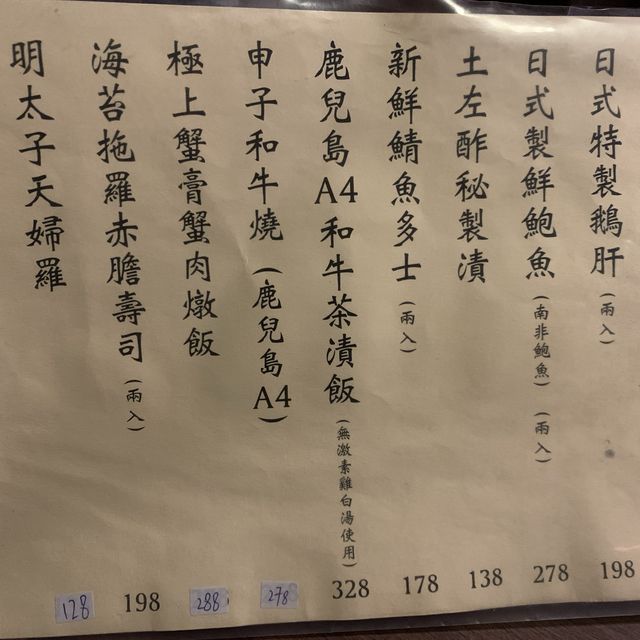 日式特製鵝肝（兩入） 198
日式製鮮鮑魚（南非鮑魚）（兩入） 278
土左酢秘製漬 138
新鮮鯖魚多士（兩入） 178
鹿兒島A4和牛茶漬飯（無激素雞白湯使用） 328
申子和牛燒（鹿兒島A4） 278
極上蟹膏蟹肉燉飯 288
海苔拖羅赤膽壽司（兩入） 198
明太子天婦羅 128